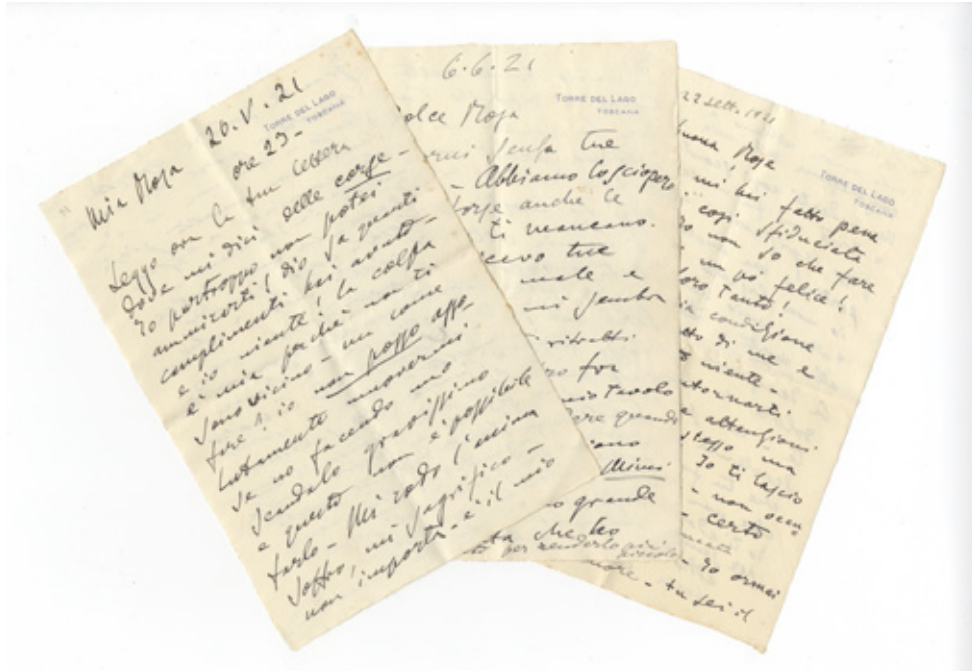 Mia Rosa 20.V.21
TORRE DEL LAGO
TOSCANA
ore 23-
Leggo ora la tua lettera
dove mi dici delle corse-
Io purtroppo non potei
ammirarti, dio sa quanti
complimenti hai avuto-
e io niente! la colpa
è mia perchè non ti
sono vicino - ma come
fare? io non posso asso-
lutamente muovermi
se no facendo uno
scandalo gravissimo
e questo non è possibile
farlo- Mi rodo l'anima
soffro, mi sagrifico-
non importa- è il mio
6.6.21
TORRE DEL LAGO
TOSCANA
olce Rosa
senza tue
- Abbiamo lo sciopero
forse anche le
ti mancano.
cevo tue
male e
mi sembra
ritratti
ro fra
mio tavolo
quando
iano
Mimi
grande
ta che ho
per renderlo più
piccolo
22 sett. 1921
TORRE DEL LAGO
TOSCANA
uona Rosa
mi hai fatto pena
così sfiduciata
non so che fare
un pò felice!
oro tanto!
condizione
tto di me e
niente-
ntornarti
attenzioni
stesso ma
Io ti lascio
- non occu
- certo
- Io ormai
more- tu sei il